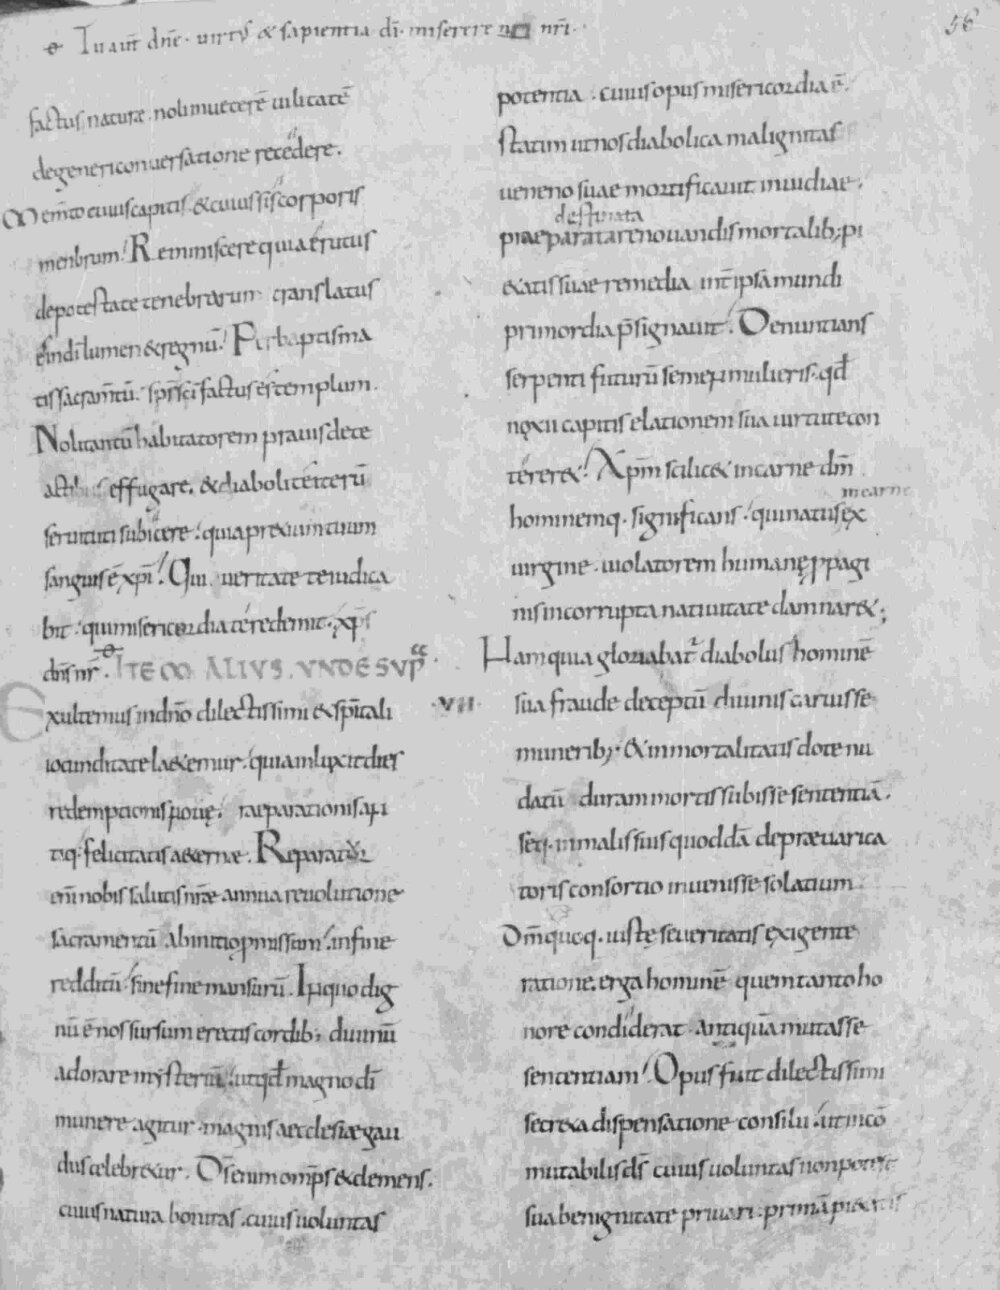 Tu aut̄ dn̄e · uirtꝰ & sapientia dī · miserere nr̄i ·
56
factus naturę . noli inueterē uilitatē
degeneri conuersatione recedere .
Mem̄to cuius capitis . & cuius sis corporis
menbrum . Reminiscere quia erutus
de potestate tenebrarum translatus
es in dī lumen & regnū . Per baptisma
tis sacram̄tū . sp̄s sc̄i factus es templum .
Noli tantū habitatorem prauis de te
actibus effugare . & diaboli te iterū
seruituti subicere . quia pretium tuum
sanguis ē xp̄i . Qui ueritate te iudica
bit . qui misericordia te redemit . xp̄s
dn̄s nr̄ . ITEM ALIVS . VNDE SVP̄
Exultemus in dn̄o dilectissimi & sp̄itali
iocunditate lætemur . quia inluxit dies
redemptionis nouę . præparationis anti
tiq . felicitatis æternæ . Reparatur
eni nobis salutis nr̄æ annua reuolutione
sacramentū ab initio ꝓmissum . in fine
redditū sine fine mansurū . In quo dig
nū ē nos sursum erectis cordib; diuinū
adorare mysteriū . ut qd̄ magno dī
munere agitur . magnis æcclesiæ gau
diis celebretur . Ds̄ enim omp̄s & clemens .
cuius natura bonitas . cuius uoluntas
potentia . cuius opus misericordia ē .
statim ut nos diabolica malignitas
ueneno suae mortificauit inuidiae .
destinata
praeparata renouandis mortalib; pi
&atis suae remedia int̄ ipsa mundi
primordia p̄signauit . Denuntians
serpenti futurū semen mulieris . qd̄
noxii capitis elationem sua uirtute con
terer& . Xp̄m scilic& in carne dm̄
in carne
hominemq . significans . qui natus ex
uirgine . uiolatorem humanę ꝓpagi
nis incorrupta natiuitate damnar& ;
Nam quia gloriabat̄ diabolus hominē
· VII · sua fraude deceptū diuinis caruisse
munerib; & inmortalitatis dote nu
datū duram mortis subisse sententiā .
seq . in malis suis quoddā de præuarica
toris consortio inuenisse solatium
Dm̄ quoq . iustę seueritatis exigente
ratione . erga hominē quem tanto ho
nore condiderat . antiquā mutasse
sententiam . Opus fuit dilectissimi
secretæ dispensatione consilii . ut incō
mutabilis ds̄ cuius uoluntas non potest
sua benignitate priuari . primā pietatis